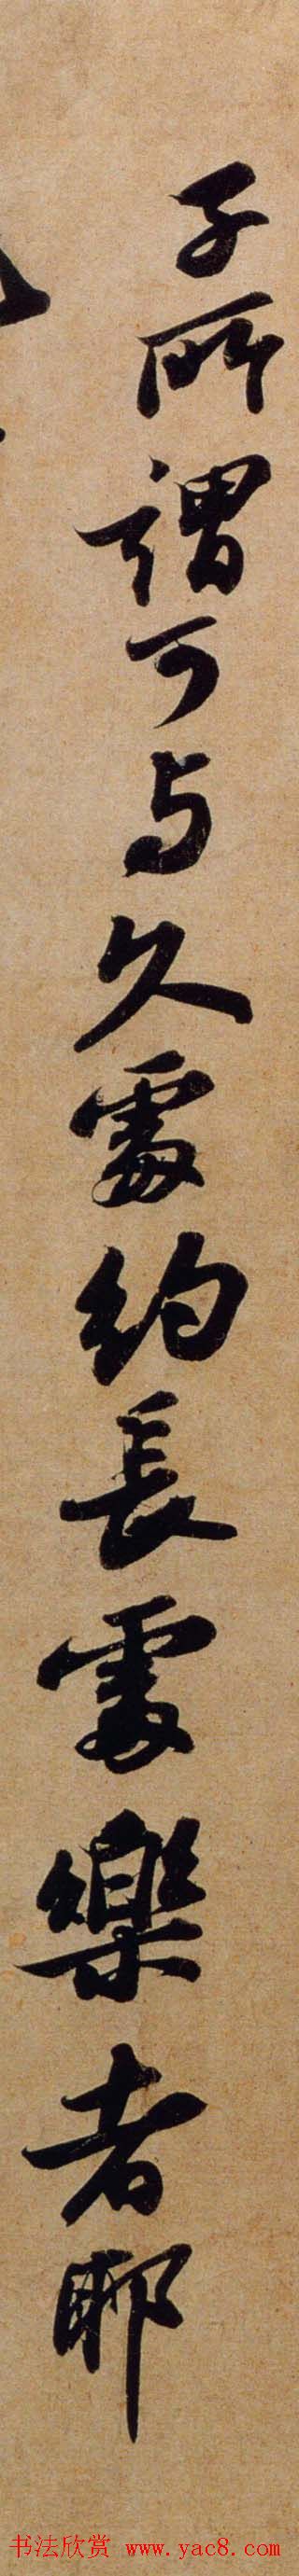 子所謂可与久處約長處樂者耶
书法欣赏 www.yac8.com